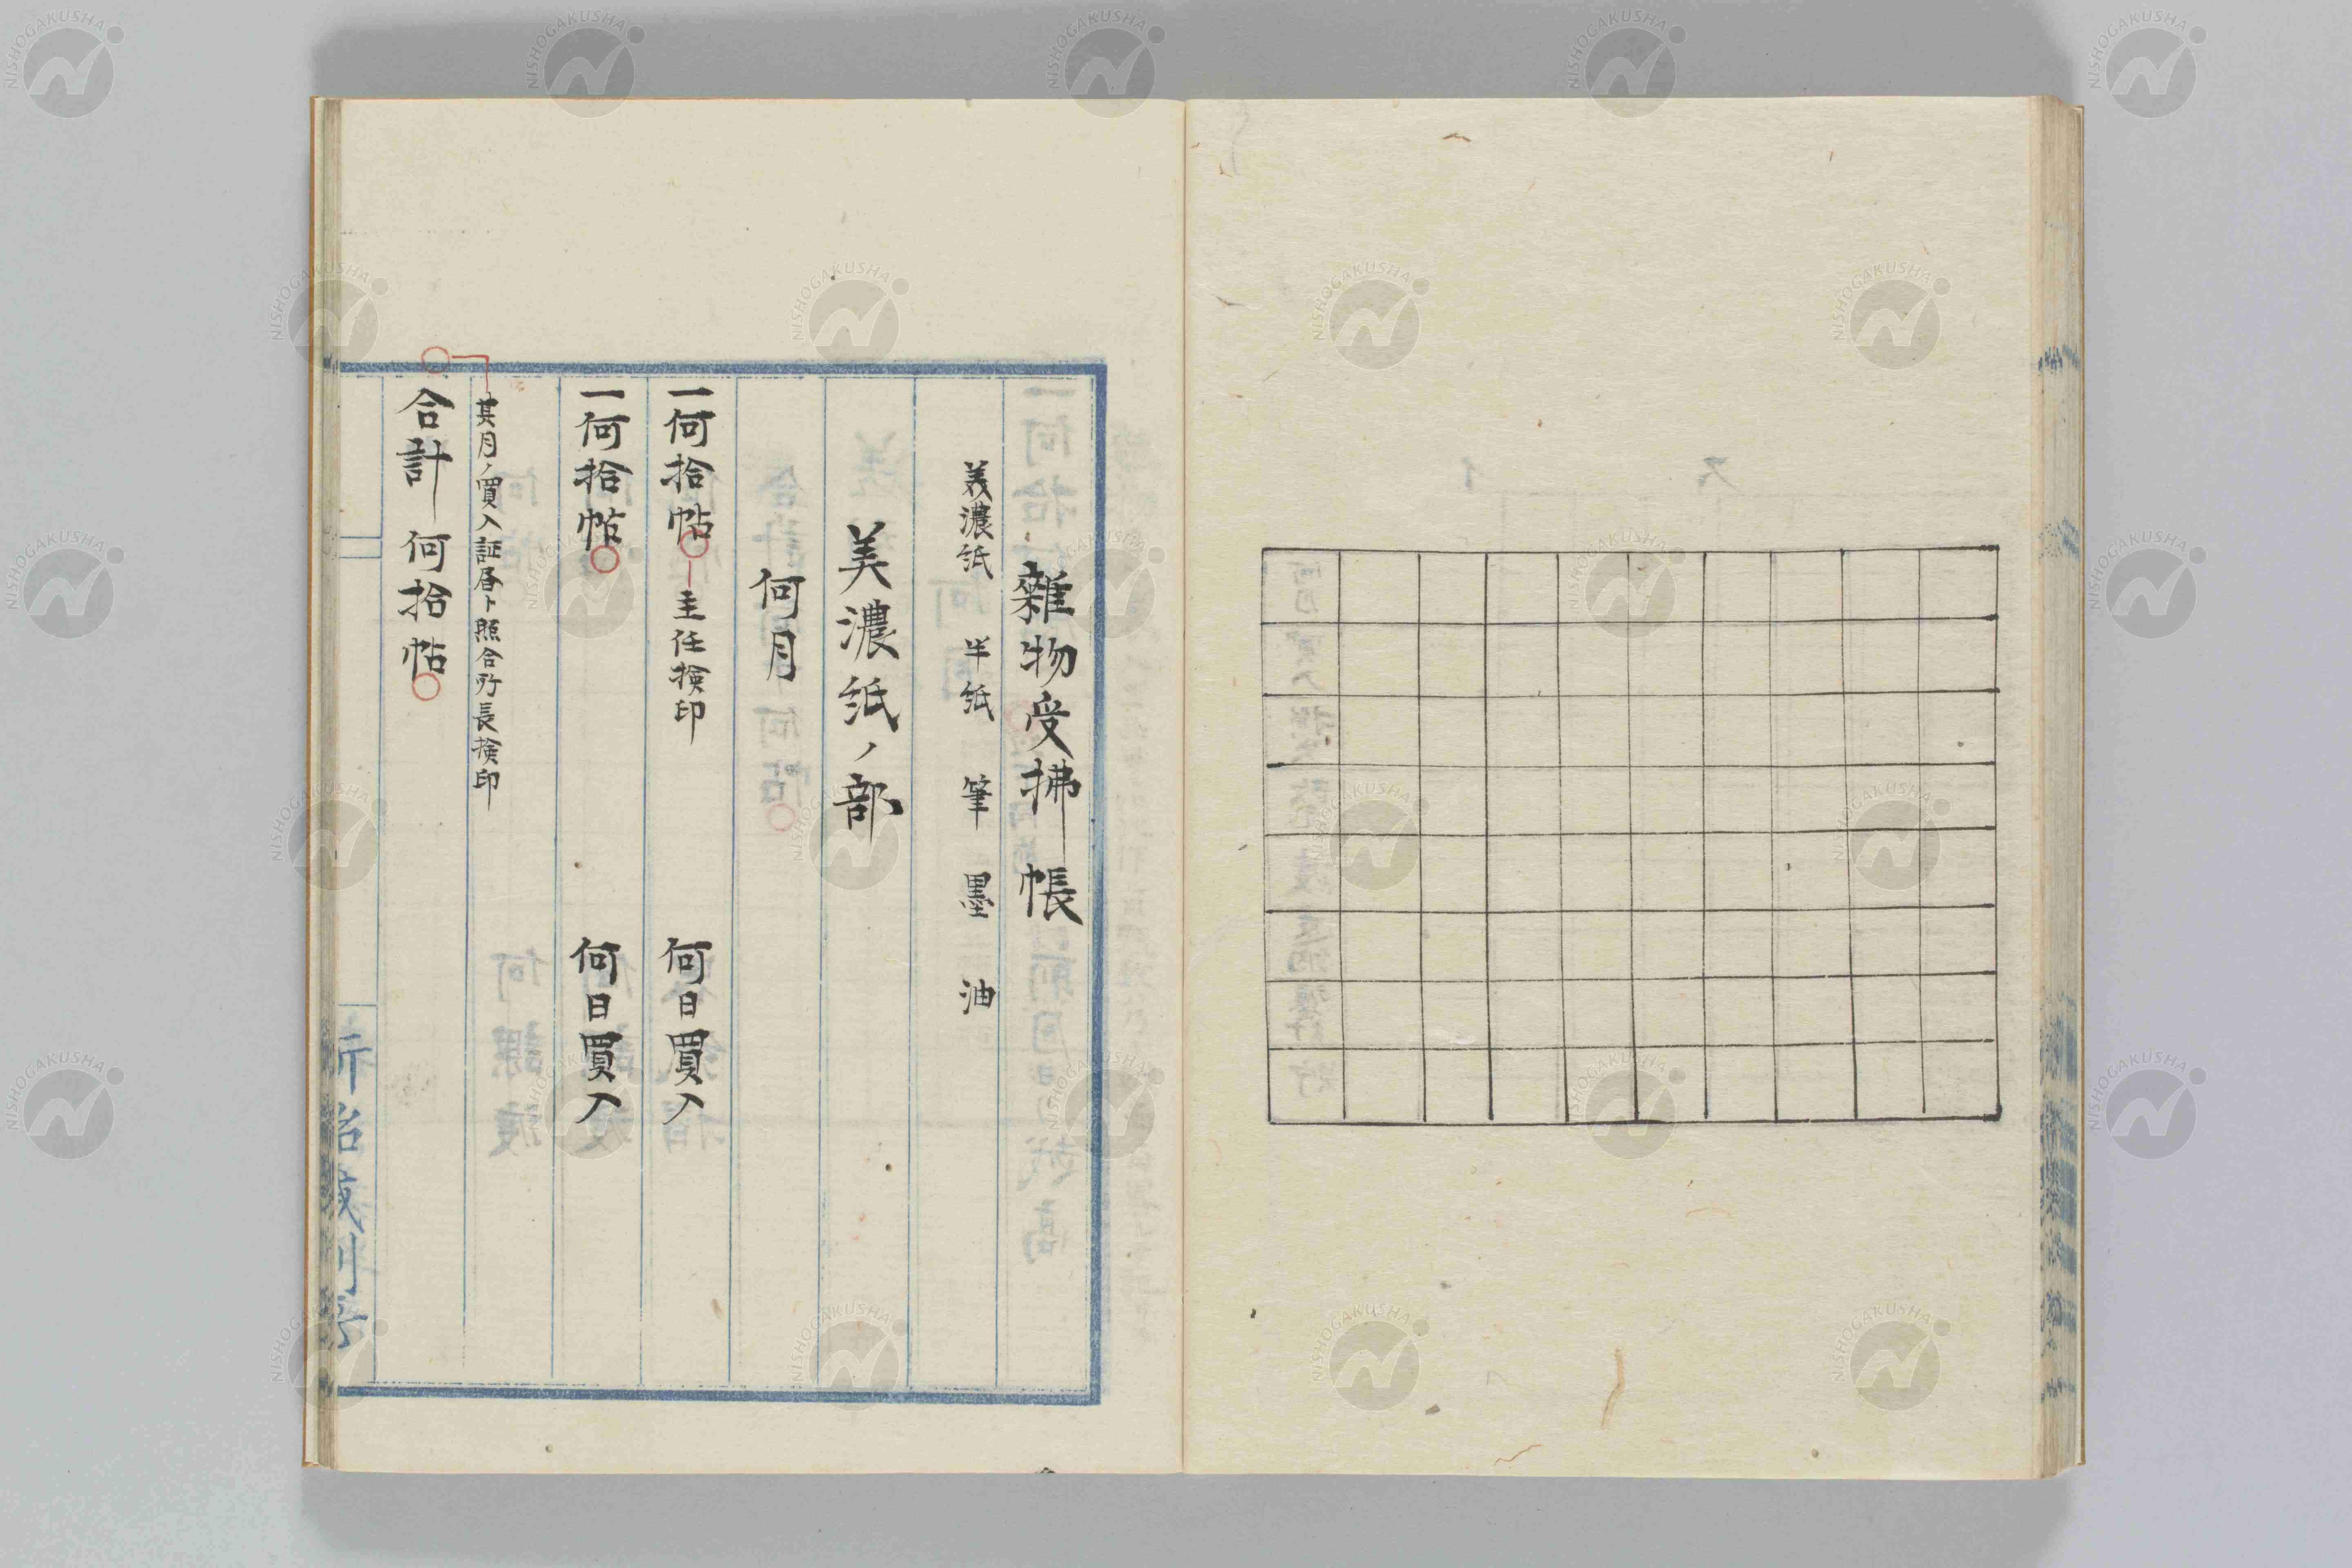 雜物受拂帳
美濃紙 半紙 筆 墨 油
美濃紙ノ部
何月
一何拾帖 主任検印 何日買入
一何拾帖 何日買入
其月ノ買入証届ト照合所長検印
合計 何拾帖
NISHOGAKUSHA